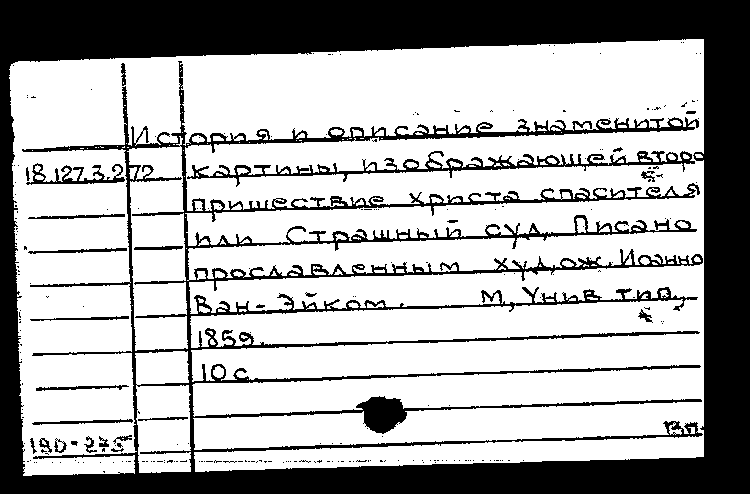 История и описание знаменитой
18.127.3.272 картины, изображающей второ
пришествие христа спасителя
или Страшный суд. Писано
прославленным худ,ож. Иоанно
Ван-Эйком. М, Унив тип.,
1859.
10 с
190-275